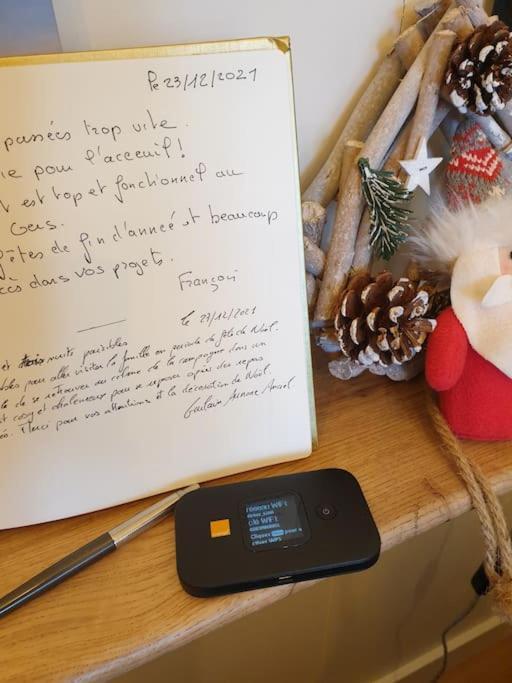 le 23/12/2021
passées trop vite.
pour l'acceuil !
est top et fonctionnel au
Gers.
fêtes de fin d'année et beaucoup
dans vos projets.
François
le 27/12/2021
et trois nuits paisibles
pour aller visiter la famille en période de fête de Noël.
de se retrouver au calme de la campagne dans un
cosy et chaleureux pour se reposer après des repas
Merci pour vos attentions et la décoration de Noël.
réseau WiFi
clé WiFi
Cliquez pour
WPS